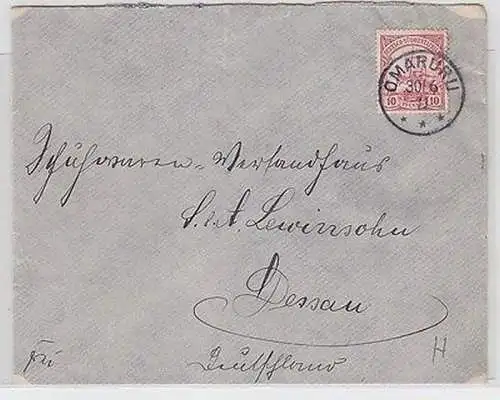 OMARURU
30/6
10 10
Schuhwaren-Versandhaus
S. & A. Lewinsohn
Dessau
Deutschland
H